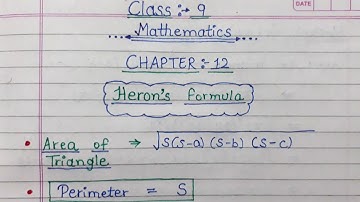 DATE
Class :- 9
Mathematics
CHAPTER :- 12
Heron's formula
• Area of Triangle → √S(S-a) (S-b) (S-c)
• Perimeter = S